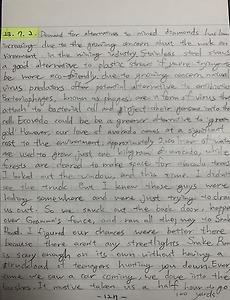 23. 7. 2. Demand for alternatives to mined diamonds has been
increasing due to the growing concern about the work en
vironment in the mining industry. Stainless steel straws
a good alternative to plastic straws if you're trying to
be more eco-friendly. due to growing concern, natural
virus predators offer potential alternative to antibiotics
Bacteriophages, known as phages, are a form of virus that
to bacterial cell and inject their genome into the
cell. Ecovado could be a greener alternative to green
gold. However, our love of avocado comes at a significant
cost to the environment, approximately 2,000 liters of water
are used to grow just one kilogram of avocado, while
forests are cleared to make space for avocado trees.
I looked out the window, and this time, I didn't
see the truck. But I knew those guys were
hiding somewhere and were just trying to draw
us out. So we snuck out the back door, hopped
over Gramma's fence, and ran all the way to Snake
Road. I figured our chances were better there
because there aren't any streetlights. Snake Road
is scary enough on its own without having a
truckload of teenagers hunting you down. Every
time we saw a car coming, we dove into the
bushes. It must've taken us a half hour to go
100 yards.